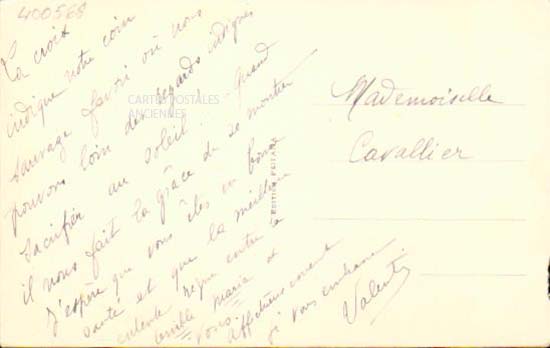 400568
La croix
indique notre coin
sauvage favori où nous
pouvons loin des regards indignes
sacrifier au soleil, quand
il nous fait la grâce de se montrer
J'espère que vous êtes en bonne
santé et que la meilleure
entente règne entre la
famille Maria et
vous.
affectueusement
je vous embrasse
Valentin
Mademoiselle
Cavallier
CARTES POSTALES
ANCIENNES
EDITION